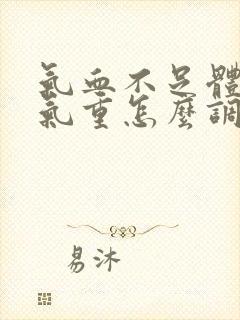 氣血不足體
氣重怎麼調
易沐